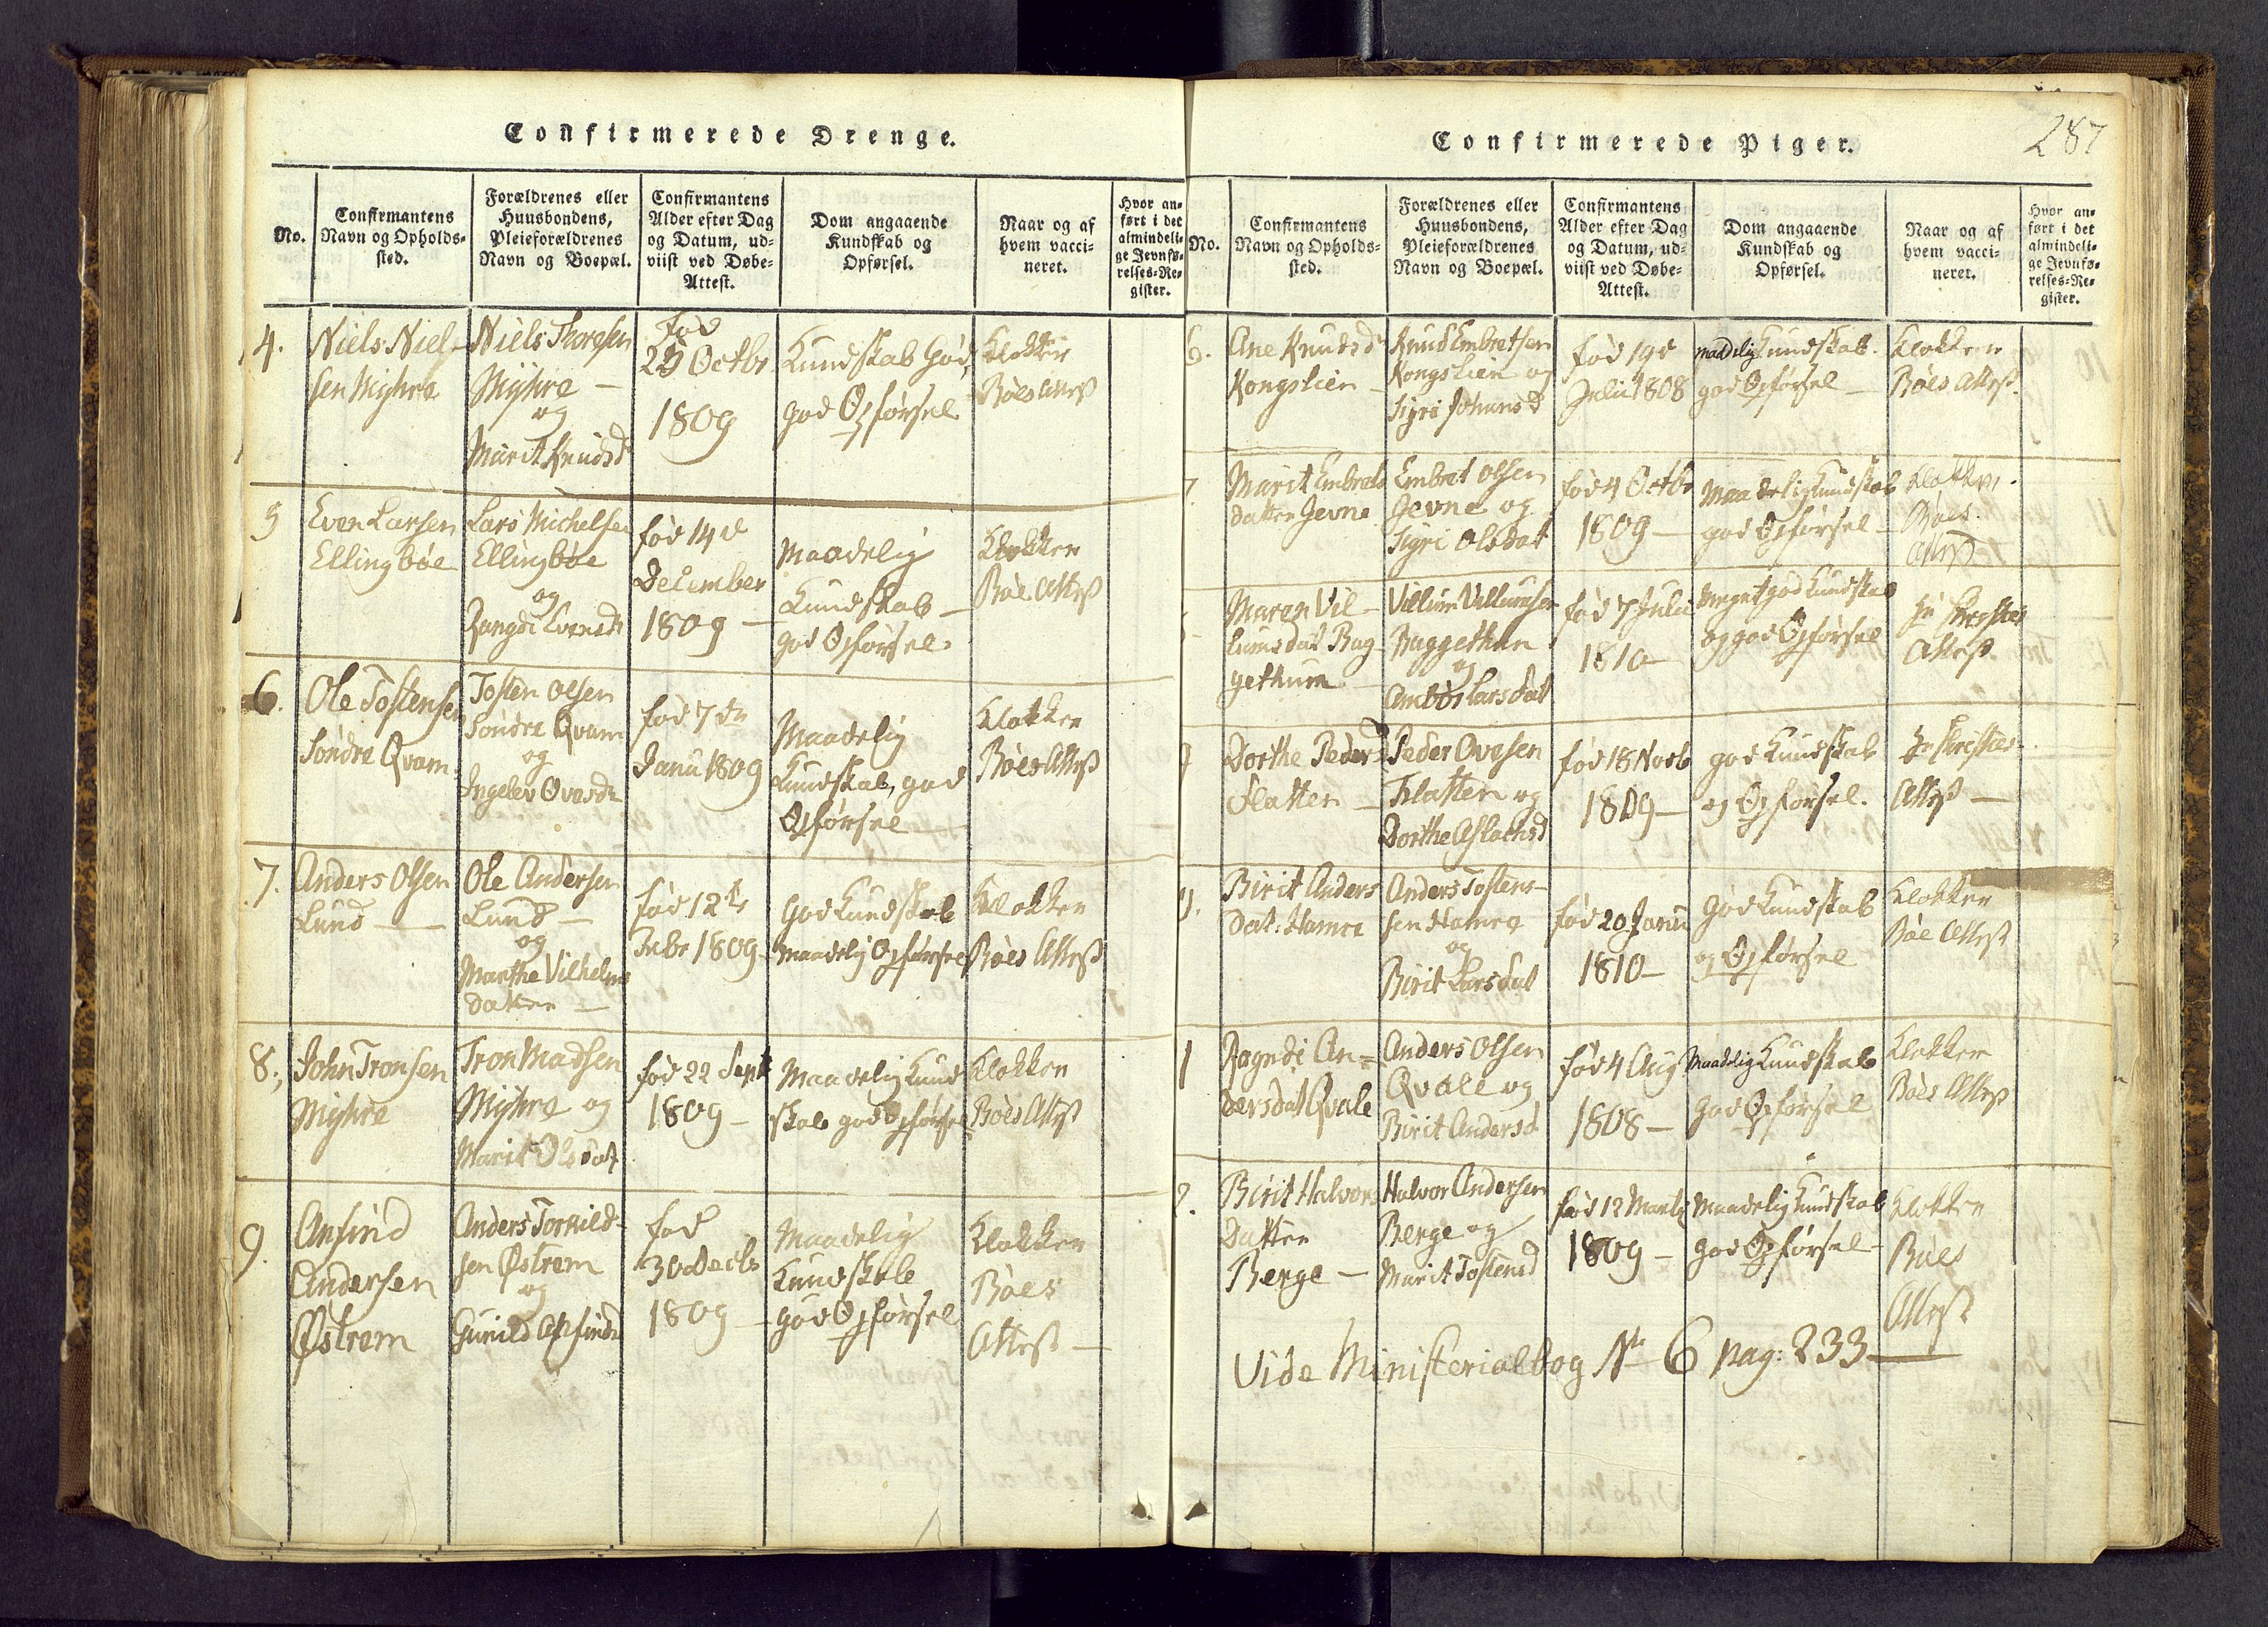 Confirmerede Drenge.
No.
Confirmantens
Navn og Opholds-
sted.
Forældrenes eller
Huusbondens,
Pleieforældrenes
Navn og Boepæl.
Confirmantens
Alder efter Dag
og Datum, ud-
viist ved Døbe-
Attest.
Dom angaaende
Kundskab og
Opførsel.
Naar og af
hvem vacci-
neret.
Hvor an-
ført i det
almindeli-
ge Jevnfø-
relses-Re-
gister.
4.
Niels Niel-
sen Myhre
Niels Thoresen
Myhre -
og
Marit Knudsd
Fød
25 Octbr
1809
Kundskab God,
god Opførsel
Klokker
Bøes Attest
5
Even Larsen
Ellingbøe
Lars Michelsen
Ellingbøe
og
Rangdi Evensd
fød 14d
December
1809 -
Maadelig
Kundskab -
god Opførsel
Klokker
Bøe Attest
6.
Ole Tostensen
Søndre Qvam
Tosten Olsen
Søndre Qvam
og
Ingelev Ovesdr
fød 7de
Janu 1809
Maadelig
Kundskab, god
Opførsel -
Klokker
Bøes Attest
7.
Anders Olsen
Lund -
Ole Andersen
Lund -
og
Marthe Vilhelms
datter -
fød 12te
Febr 1809
God Kundskab
maadelig Opførsel
Klokker
Bøes Attest
8.,
John Tronsen
Myhre
Tron Madsen
Myhre og
Marit Olsdat
fød 22 Sept
1809 -
Maadelig Kund
skab god Opførsel
Klokker
Bøes Attest
9.
Anfind
Andersen
Østrem
Anders Torkild-
sen Østrem
og
Gunild Anfindsd
fød
30 Decb
1809 -
Maadelig
Kundskab
god Opførsel
Klokker
Bøes
Attest -
Confirmerede Piger.
287
No.
Confirmantens
Navn og Opholds-
sted.
Forældrenes eller
Huusbondens,
Pleieforældrenes
Navn og Boepæl.
Confirmantens
Alder efter Dag
og Datum, ud-
viist ved Døbe-
Attest.
Dom angaaende
Kundskab og
Opførsel.
Naar og af
hvem vacci-
neret.
Hvor an-
ført i det
almindeli-
ge Jevnfø-
relses-Re-
gister.
6.
Ane Knudsd
Kongslien -
Knud Embretsen
Kongslien og
Sigri Johansd
fød 19d
Julii 1808
maadelig Kundskab.
god Opførsel -
Klokker
Bøes Attest.
7
Marit Embrets
datter Jevne
Embret Olsen
Jevne og
Sigri Olsdat
fød 4 Octbr
1809 -
Maadelig Kundskab
god Opførsel -
Klokker
Bøes
Attest
Maren Vil-
lumsdat Bag-
gethun
Villum Villumsen
Baggethun
og
Larsdat
fød 7 Julii
1810 -
Meget god Kundskab
og god Opførsel
Attest
9
Dorthe Peders
Flatten -
Peder Ovesen
Flatten og
Dorthe Aslachsd
fød 18 Novb
1809 -
god Kundskab
og Opførsel.
Attest -
Birit Anders
dat: Hamre
Anders Tostens-
sen Hamre
og
Birit Larsdat
fød 20 Janu
1810 -
God Kundskab
og Opførsel
Klokker
Bøe Attest
1
Ragndi An=
dersdat Qvale
Anders Olsen
Qvale og
Birit Andersd
fød 4 Aug
1808 -
Maadelig Kundskab
God Opførsel
Klokker
Bøes Attest
2.
Birit Halvors
Datter
Berge -
Halvor Andersen
Berge og
Marit Tostensd
fød 12 Martz
1809 -
Maadelig Kundskab
god Opførsel -
Klokker
Bøes
Attest
Vide Ministerialbog No 6 pag: 233